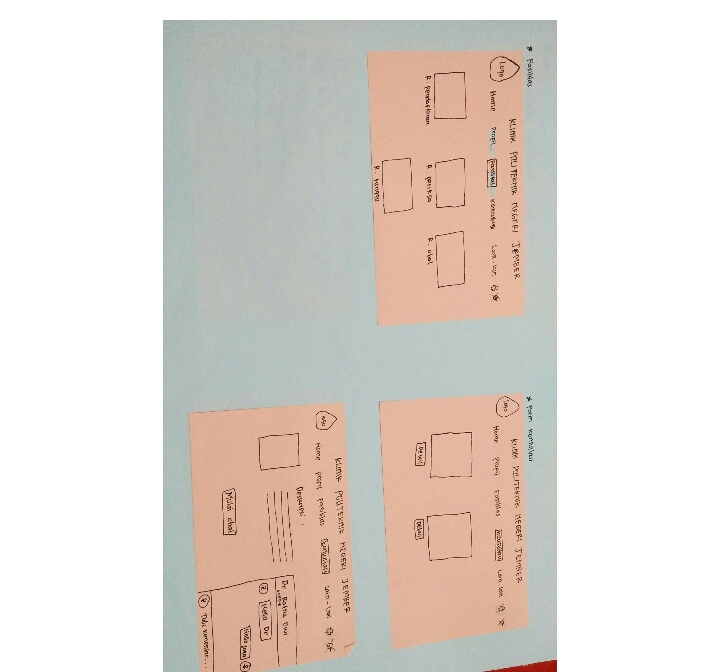 * Fasilitas
Logo
KLINIK POLITEKNIK NEGERI JEMBER
Home Profil Fasilitas Konsultasi Lain-lain
R. pendaftaran
R. periksa
R. obat
R. tunggu
* Form konsultasi
Logo
KLINIK POLITEKNIK NEGERI JEMBER
Home Profil Fasilitas Konsultasi Lain-lain
Detail
Detail
KLINIK POLITEKNIK NEGERI JEMBER
Home Profil Fasilitas Konsultasi Lain-lain
Deskripsi :
Mulai chat
Hallo Dr
Tulis komentar...